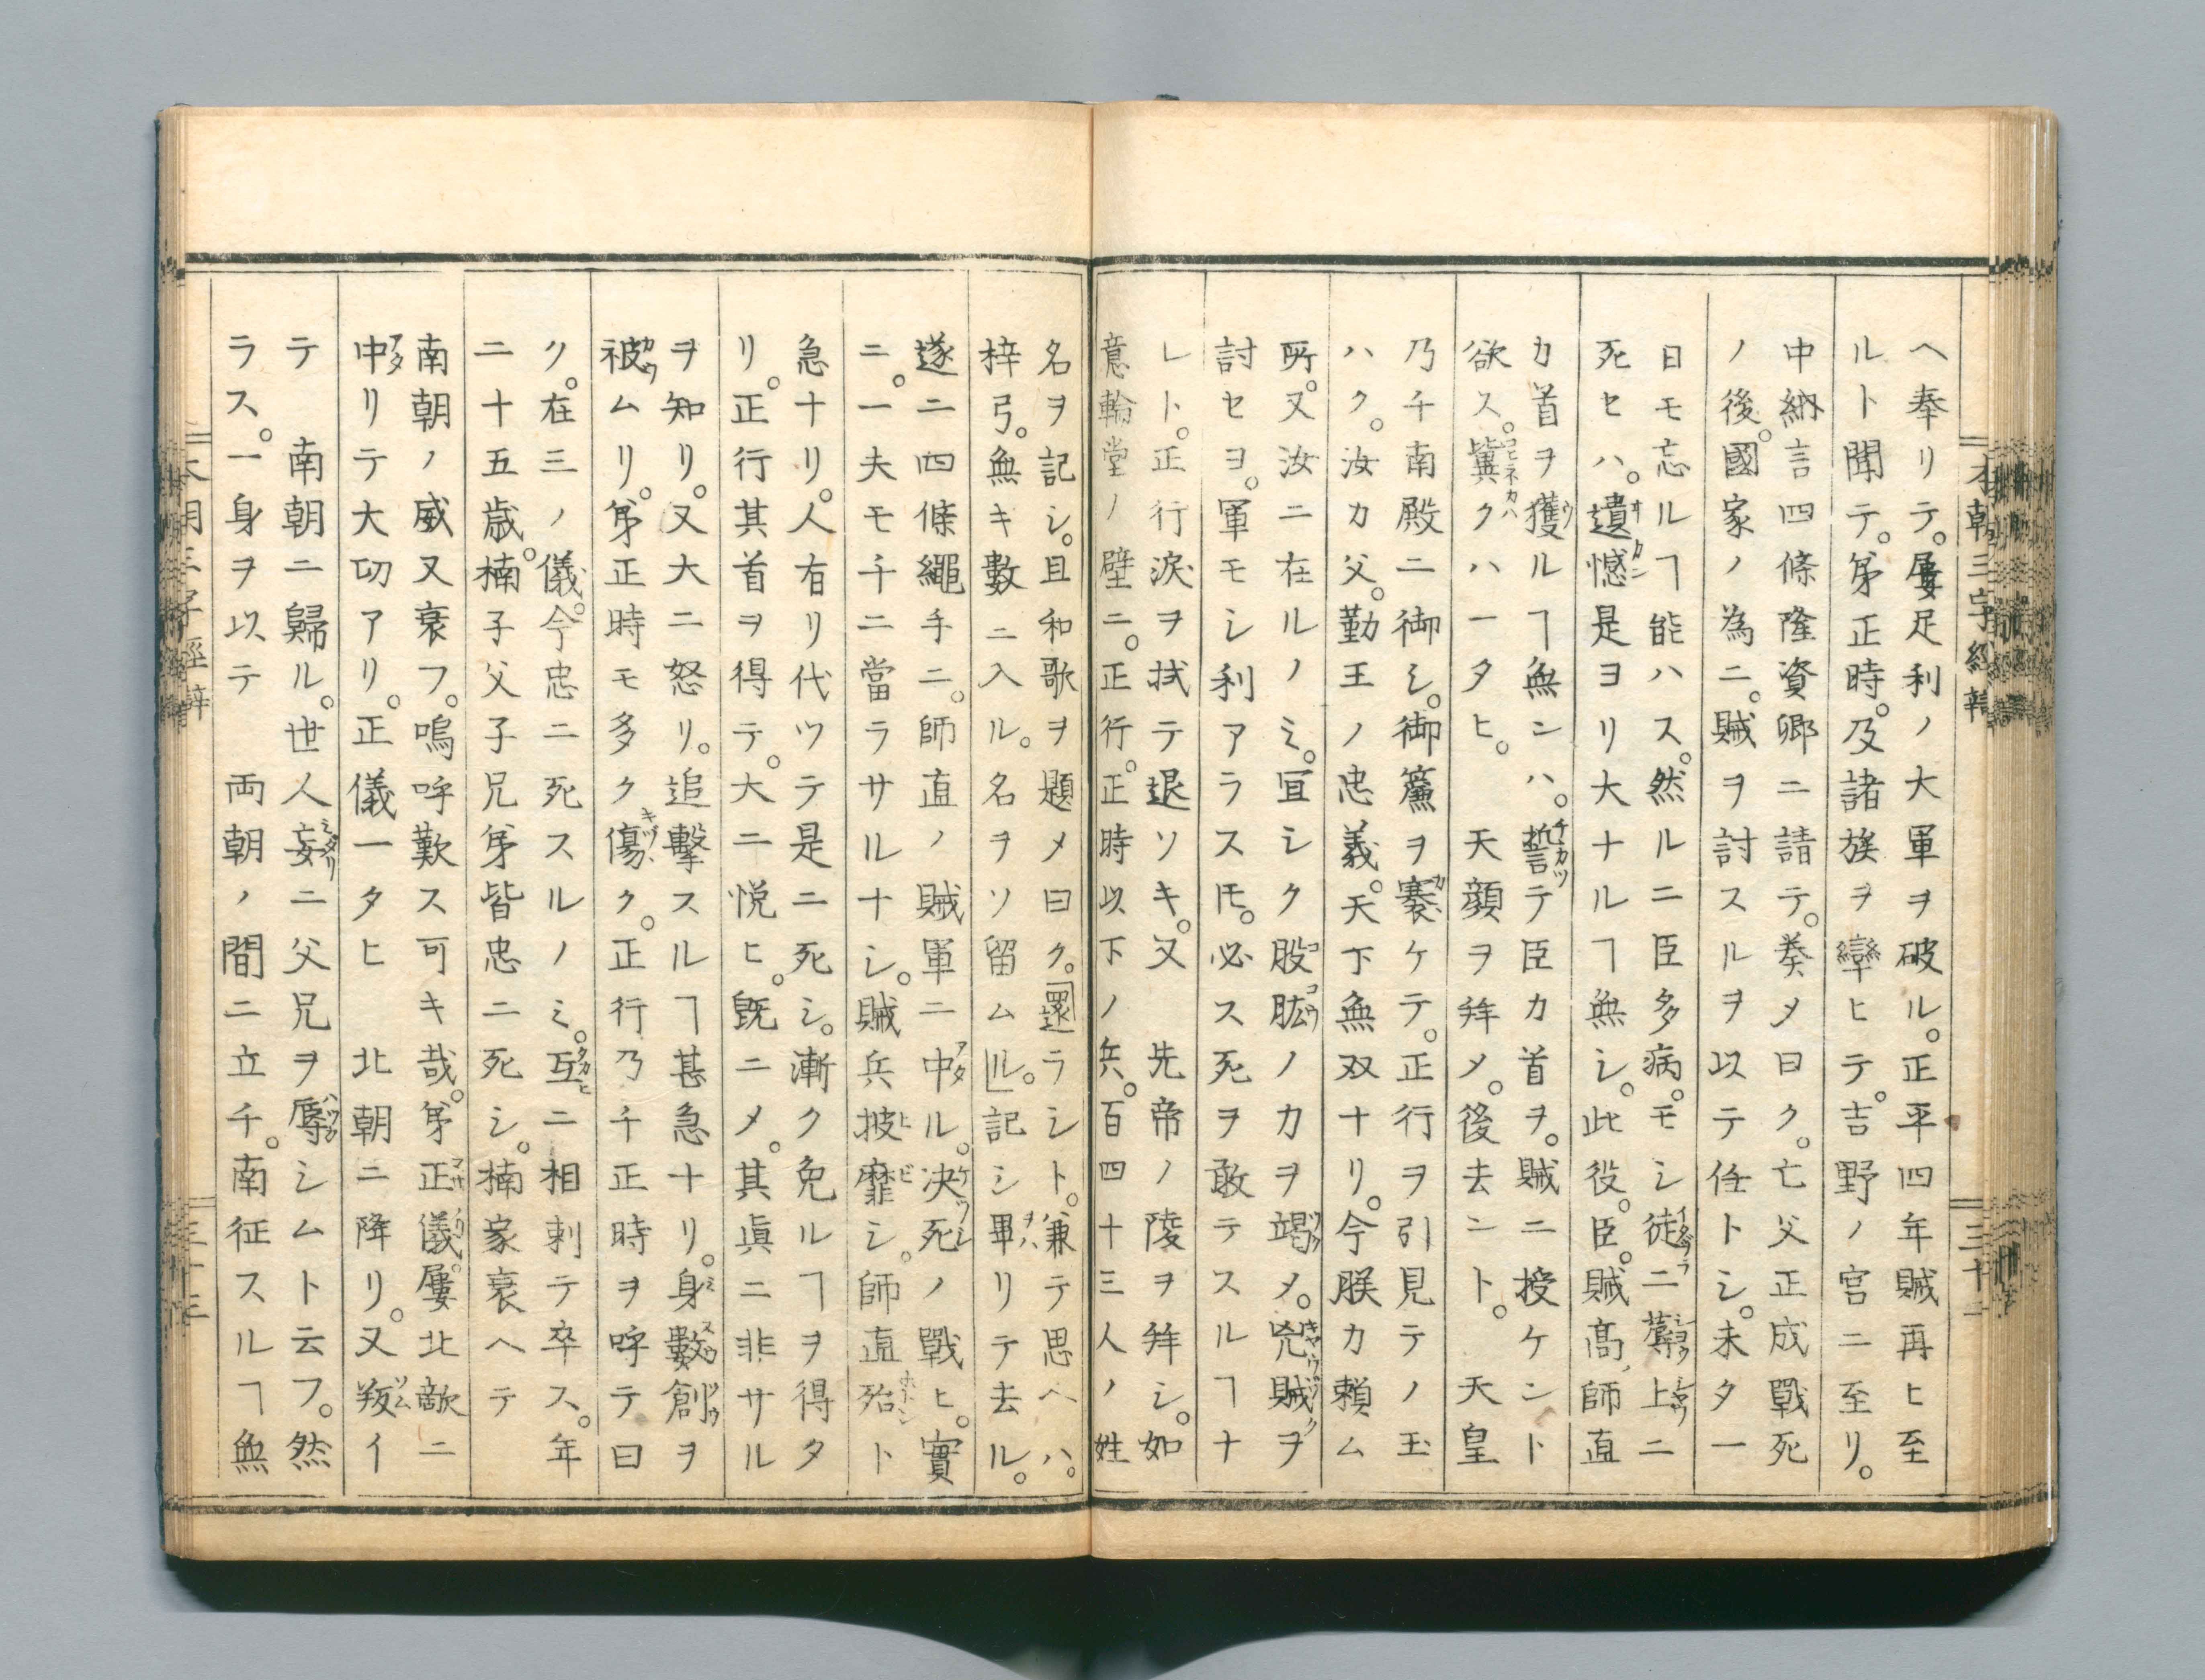 ヘ奉リテ。屢足利ノ大軍ヲ破ル。正平四年賊再ヒ至
ルト聞テ。弟正時。及諸族ヲ率ヒテ。吉野ノ宮ニ至リ。
中納言四條隆資卿ニ請テ。奏メ曰ク。亡父正成戰死
ノ後。國家ノ為ニ。賊ヲ討スルヲ以テ任トシ。未タ一
日モ忘ルヿ能ハス。然ルニ臣多病。モシ徒ニ蓐上ニ
死セハ。遺憾是ヨリ大ナルヿ無シ。此役。臣。賊高師直
カ首ヲ獲ルヿ無ンハ。誓テ臣カ首ヲ。賊ニ授ケント
欲ス。冀クハ一タヒ。天顔ヲ拜メ。後去ント。天皇
乃チ南殿ニ御シ。御簾ヲ褰ケテ。正行ヲ引見テノ玉
ハク。汝カ父。勤王ノ忠義。天下無双ナリ。今朕カ頼ム
所。又汝ニ在ルノミ。宜シク股肱ノカヲ竭メ。兇賊ヲ
討セヨ。軍モシ利アラスㄏ。必ス死ヲ敢テスルヿナ
レト。正行涙ヲ拭テ退ソキ。又先帝ノ陵ヲ拜シ。如
意輪堂ノ壁ニ。正行。正時以下ノ兵。百四十三人ノ姓
名ヲ記シ。且和歌ヲ題メ曰ク。還ラシト。兼テ思ヘハ。
梓弓。無キ數ニ入ル。名ヲソ留ムル。記シ畢リテ去ル。
遂ニ四條繩手ニ。師直ノ賊軍ニ中ル。决死ノ戰ヒ。實
ニ。一夫モ千ニ當ラサルナシ。賊兵披靡シ。師直殆ト
急ナリ。人有リ代ツテ是ニ死シ。漸ク免ルヿヲ得タ
リ。正行其首ヲ得テ。大ニ悦ヒ。旣ニメ。其眞ニ非サル
ヲ知リ。又大ニ怒リ。追擊スルヿ甚急ナリ。身數創ヲ
被ムリ。弟正時モ多ク傷ク。正行乃チ正時ヲ呼テ曰
ク。在三ノ儀。今忠ニ死スルノミ。互ニ相刺テ卒ス。年
二十五歳。楠子父子兄弟皆忠ニ死シ。楠家衰ヘテ
南朝ノ威又衰フ。嗚呼歎ス可キ哉。弟正儀。屢北敵ニ
中リテ大切アリ。正儀一タヒ北朝ニ降リ。又叛イ
テ南朝ニ歸ル。世人妄ニ父兄ヲ辱シムト云フ。然
ラス。一身ヲ以テ両朝ノ間ニ立チ。南征スルヿ無
本朝三字經辭
三十二
本朝三字經辭
三十三